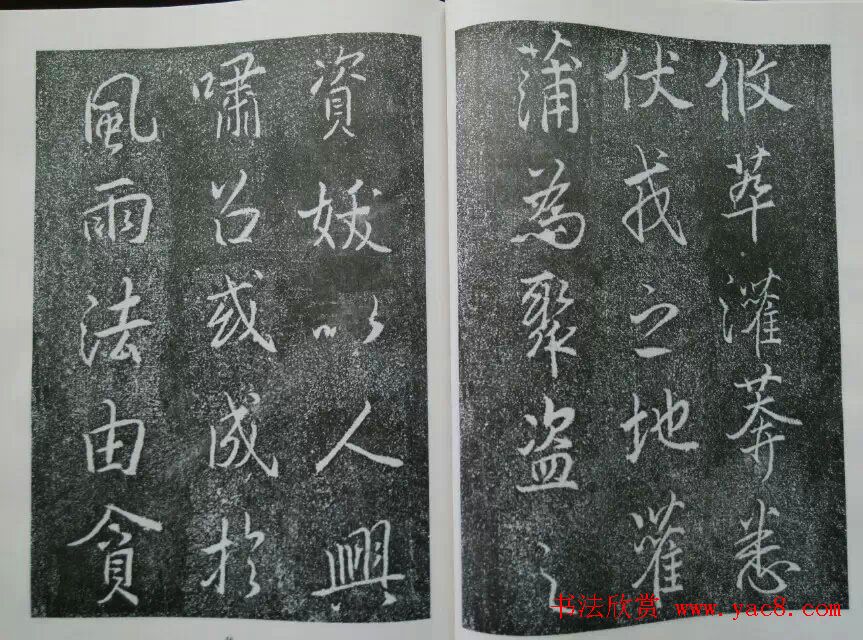 攸萃灌莽悉
伏戎之地灌
蒲為聚盗之
資妖以人興
嘯召或成於
風雨法由貪
书法欣赏 www.yac8.com